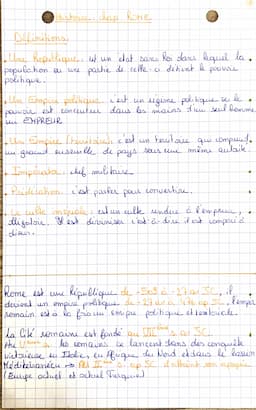 Histoire chap ROME
Définitions
Une République est un état sans Roi dans lequel la
population ou une partie de celle-ci détient le pouvoir
politique.
Un Empire politique c'est un régime politique où le
pouvoir est concentré dans les mains d'un seul homme
un EMPREUR
Un Empire (territoire) c'est un territoire qui comprend
un grand ensemble de pays sous une même autorité.
Imperator chef militaire
Prédication c'est parler pour convertir.
Le culte impérial est un culte rendu à l'empereur,
obligatoire. Il est c'est à dire il est comparé à
dieu.
Rome est une République de -509 à -27 av JC, il
devient un empire politique de -27 av à 476 ap JC, l'empire
romain est à la fois un empire politique et territoriale.
La Cité romaine est fondé au VIIIème s. av JC.
les romains se lancent dans des conquête
victorieuse en Italie, en Afrique du Nord et dans le bassin
Méditerranéen II s. ap JC
(Europe actuel et actuel Turquie)